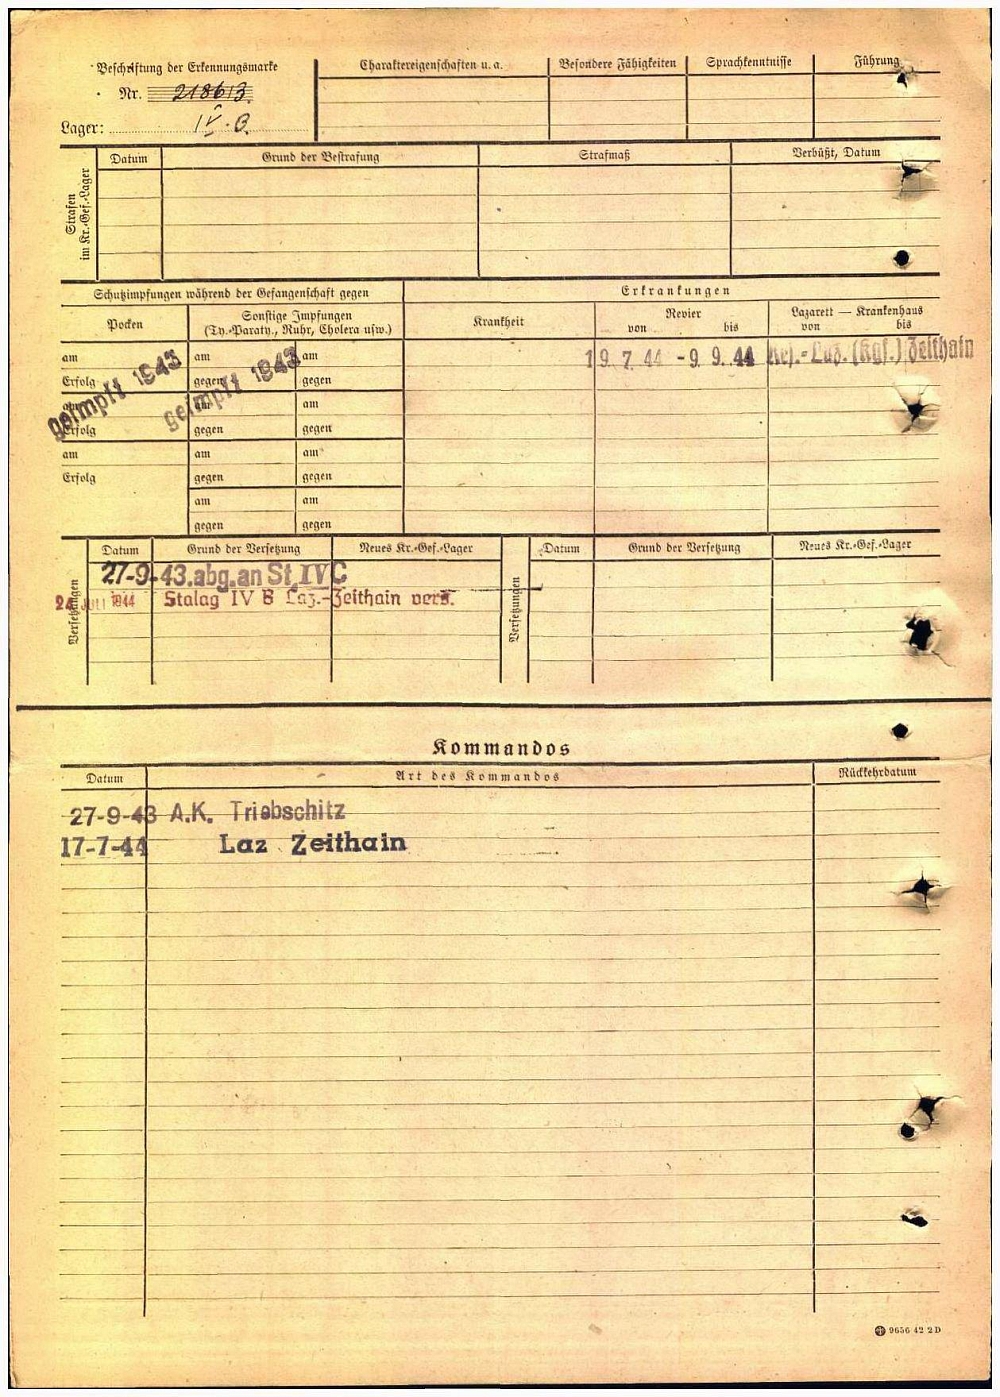 Beschriftung der Erkennungsmarke
Nr. 218613
Lager: IV. B.
Charaktereigenschaften u. a.
Besondere Fähigkeiten
Sprachkenntnisse
Führung
Strafen
im Kr.-Gef.-Lager
Datum
Grund der Bestrafung
Strafmaß
Verbüßt, Datum
Schutzimpfungen während der Gefangenschaft gegen
Erkrankungen
Pocken
Sonstige Impfungen
(Ty.-Paraty., Ruhr, Cholera usw.)
Krankheit
Revier
von bis
Lazarett — Krankenhaus
von bis
am am am
19. 7. 44 - 9. 9. 44 Res.-Laz. (Kgf.) Zeithain
Erfolg gegen gegen
geimpft 1943 geimpft 1943
am am am
Erfolg gegen gegen
am am am
Erfolg gegen gegen
am am
gegen gegen
Versetzungen
Datum Grund der Versetzung Neues Kr.-Gef.-Lager
27-9-43. abg. an St. IV C
24. JULI 1944 Stalag IV B Laz.-Zeithain vers.
Versetzungen
Datum Grund der Versetzung Neues Kr.-Gef.-Lager
Kommandos
Datum Art des Kommandos Rückkehrdatum
27-9-43 A.K. Triebschitz
17-7-44 Laz Zeithain
9656 42 2 D